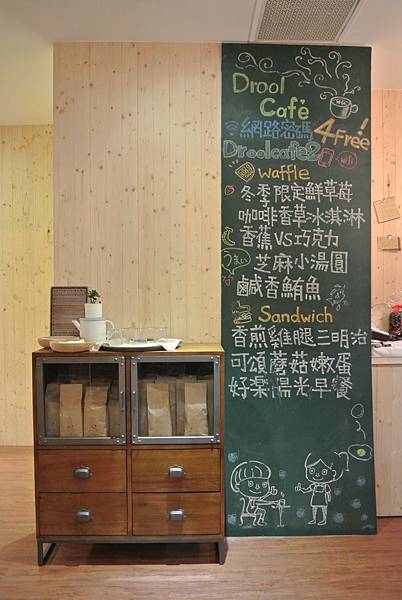 Drool
Café
網路密碼
4Free!
Droolcafe2
wifi
waffle
冬季限定鮮草莓
咖啡香草冰淇淋
香蕉VS巧克力
うまい
芝麻小湯圓
鹹香鮪魚
Sandwich
香煎雞腿三明治
可頌蘑菇嫩蛋
好樂陽光早餐